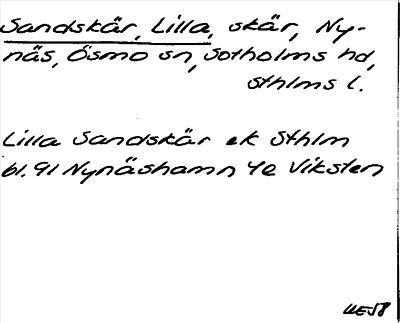 Sandskär, Lilla, skär, Ny-
näs, Ösmo sn, Sotholms hd,
Sthlms l.
Lilla Sandskär ek Sthlm
bl. 91 Nynäshamn 4e Viksten